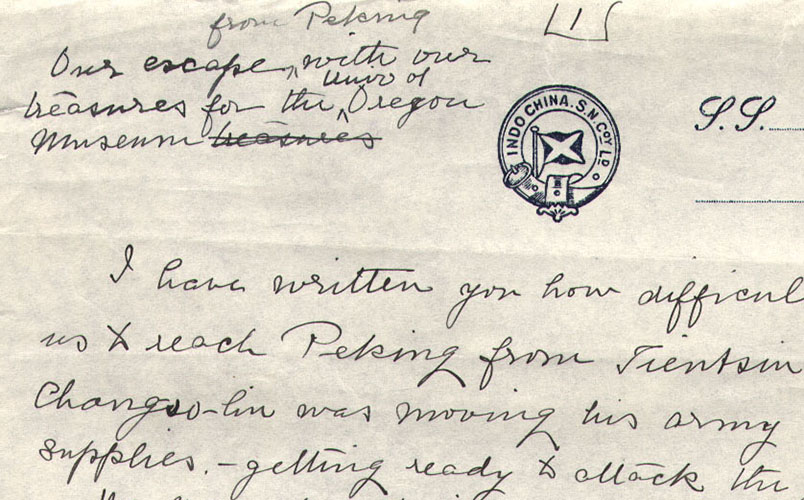 from Peking
1
Our escape ^ with our
treasures for the ^ Univ of Oregon
Museum treasures
INDO CHINA. S. N. COY. LD.
S.S.
I have written you how difficul
us to reach Peking from Tientsin
Changso-lin was moving his army
supplies. - getting ready to attack the